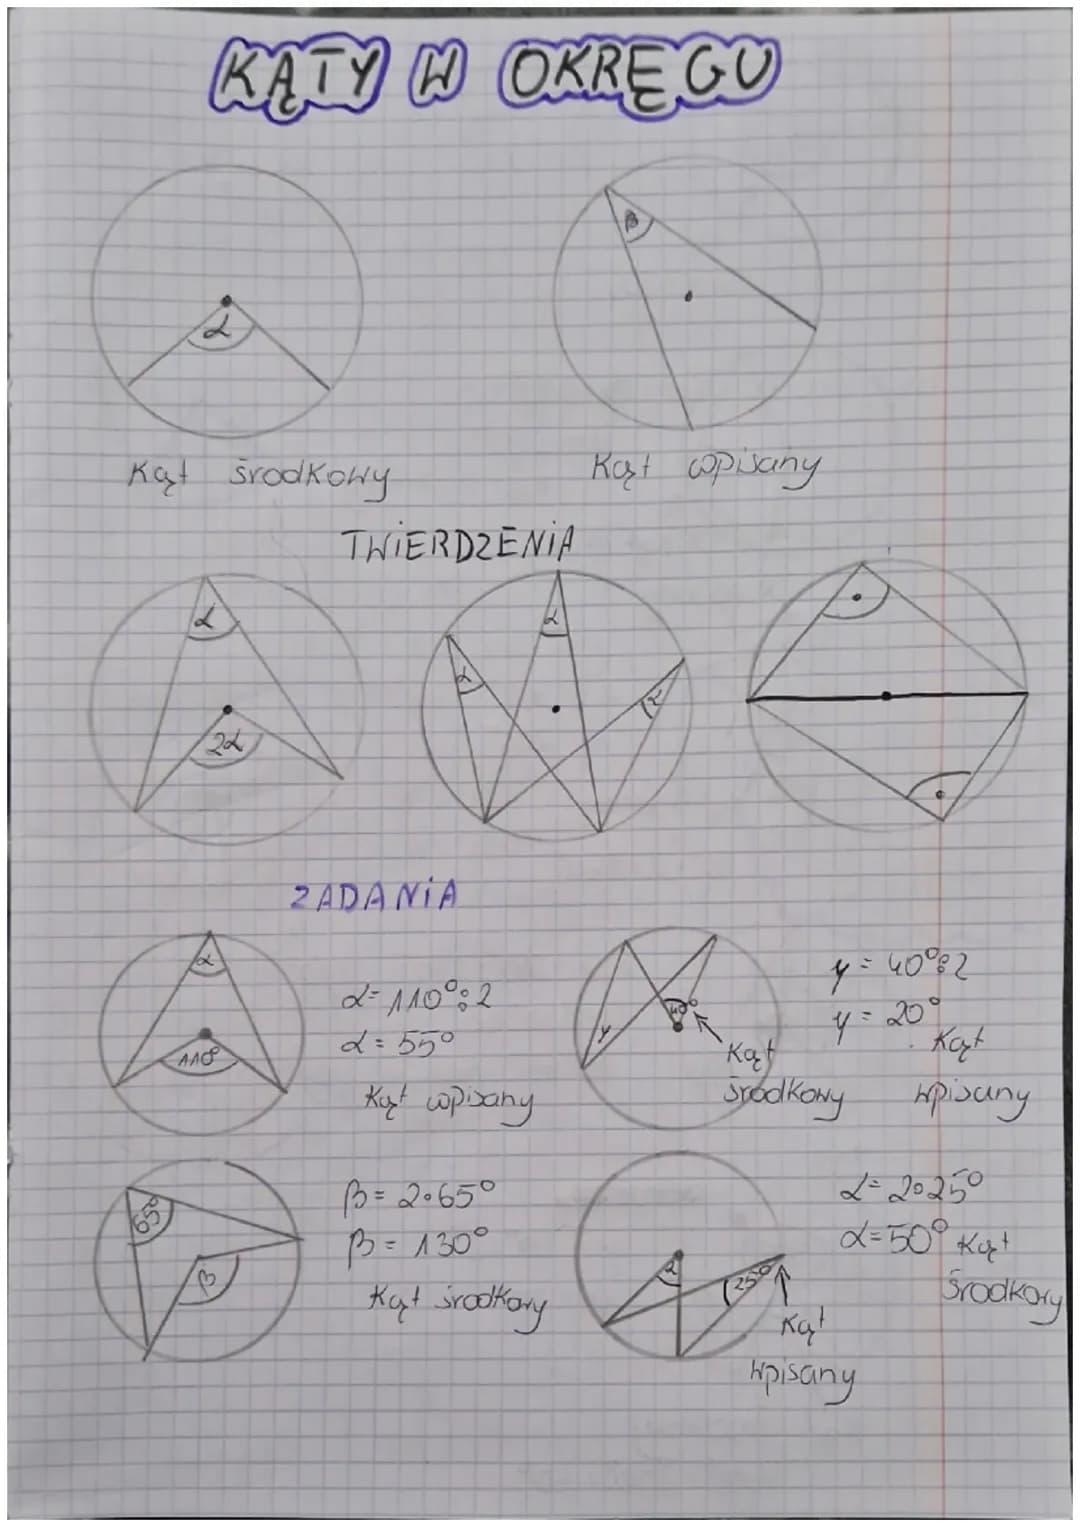 KĄTY W OKRĘGU
α
β
Kąt środkowy
Kąt wpisany
TWIERDZENIA
α
2α
α
α
α
ZADANIA
α
110°
α = 110° : 2
α = 55°
Kąt wpisany
y
40°
Kąt
środkowy
y = 40° : 2
y = 20°
Kąt
wpisany
65°
β
β = 2·65°
β = 130°
Kąt środkowy
α
25°
Kąt
wpisany
α = 2·25°
α = 50° Kąt
środkowy